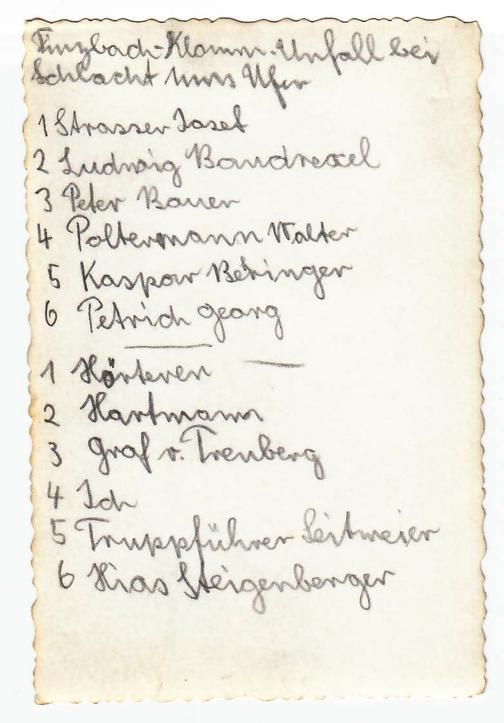 Finzbach-Klamm. Unfall bei
Schlacht ums Ufer
1 Strasser Josef
2 Ludwig Baudrexel
3 Peter Bauer
4 Poltermann Walter
5 Kaspar Beringer
6 Petrich Georg
1 Hörteren
2 Hartmann
3 Graf v. Trenberg
4 Ich
5 Truppführer Leitmeier
6 Hias Steigenberger